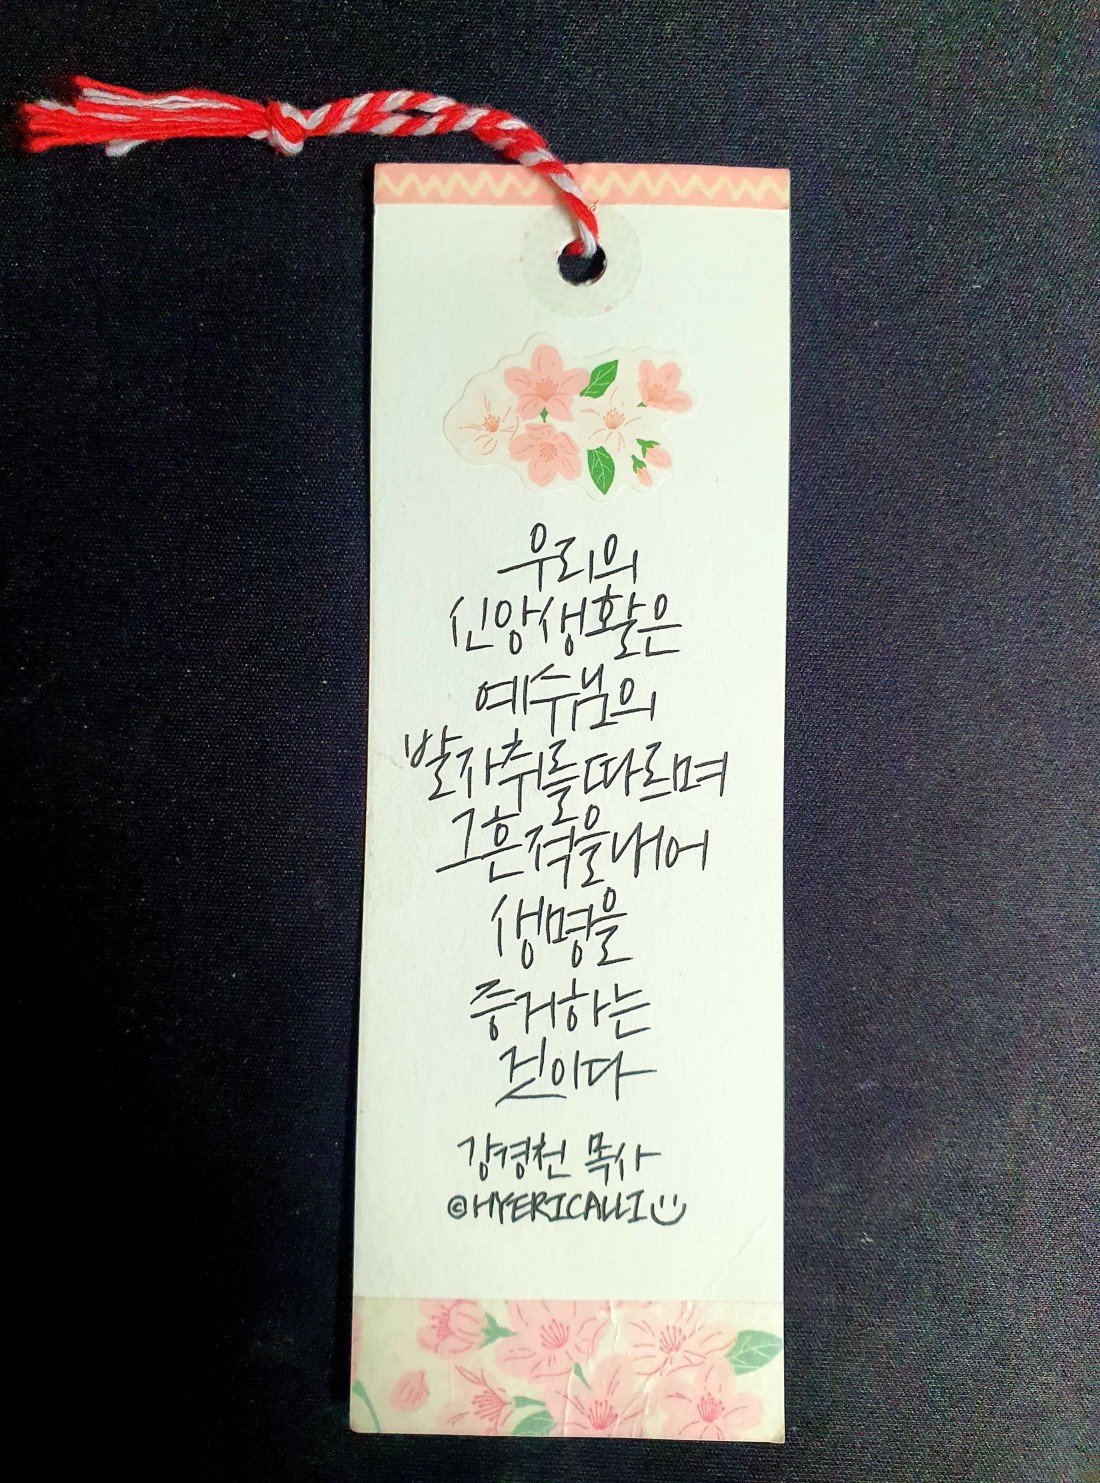 우리의
신앙생활은
예수님의
발자취를 따르며
그 흔적을 내어
생명을
증거하는
것이다
강경천 목사
©HYERICALLI